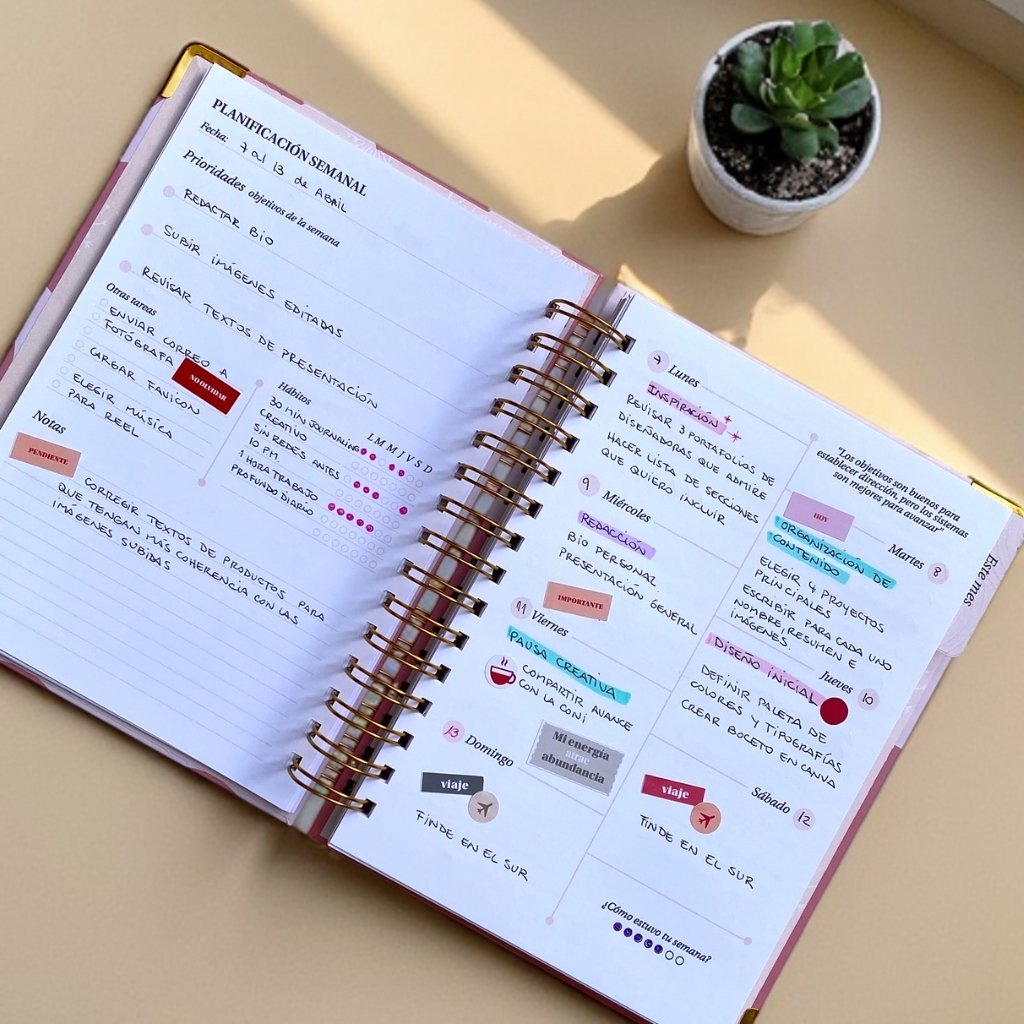 PLANIFICACIÓN SEMANAL
Fecha: 7 al 13 de ABRIL
Prioridades objetivos de la semana
REDACTAR BIO
SUBIR IMÁGENES EDITADAS
REVISAR TEXTOS DE PRESENTACIÓN
Otras tareas
ENVIAR CORREO A
FOTÓGRAFA
NO OLVIDAR
CARGAR FAVICON
ELEGIR MÚSICA
PARA REEL
Hábitos
L M M J V S D
30 MIN JOURNALING
CREATIVO
SIN REDES ANTES
10 PM.
1 HORA TRABAJO
PROFUNDO DIARIO
Notas
PENDIENTE
CORREGIR TEXTOS DE PRODUCTOS PARA
QUE TENGAN MÁS COHERENCIA CON LAS
IMÁGENES SUBIDAS
7 Lunes
INSPIRACIÓN
REVISAR 3 PORTAFOLIOS DE
DISEÑADORAS QUE ADMIRE
HACER LISTA DE SECCIONES
QUE QUIERO INCLUIR
"Los objetivos son buenos para
establecer dirección, pero los sistemas
son mejores para avanzar"
HOY
Martes 8
ORGANIZACIÓN DE
CONTENIDO
ELEGIR 4 PROYECTOS
PRINCIPALES
ESCRIBIR PARA CADA UNO
NOMBRE, RESUMEN E
IMÁGENES.
9 Miércoles
REDACCIÓN
BIO PERSONAL
PRESENTACIÓN GENERAL
IMPORTANTE
Jueves 10
DISEÑO INICIAL
DEFINIR PALETA DE
COLORES Y TIPOGRAFÍAS
CREAR BOCETO EN CANVA
11 Viernes
PAUSA CREATIVA
COMPARTIR AVANCE
CON LA CONI
Mi energía
atrae
abundancia
Sábado 12
viaje
FINDE EN EL SUR
13 Domingo
viaje
FINDE EN EL SUR
¿Cómo estuvo tu semana?
Este mes